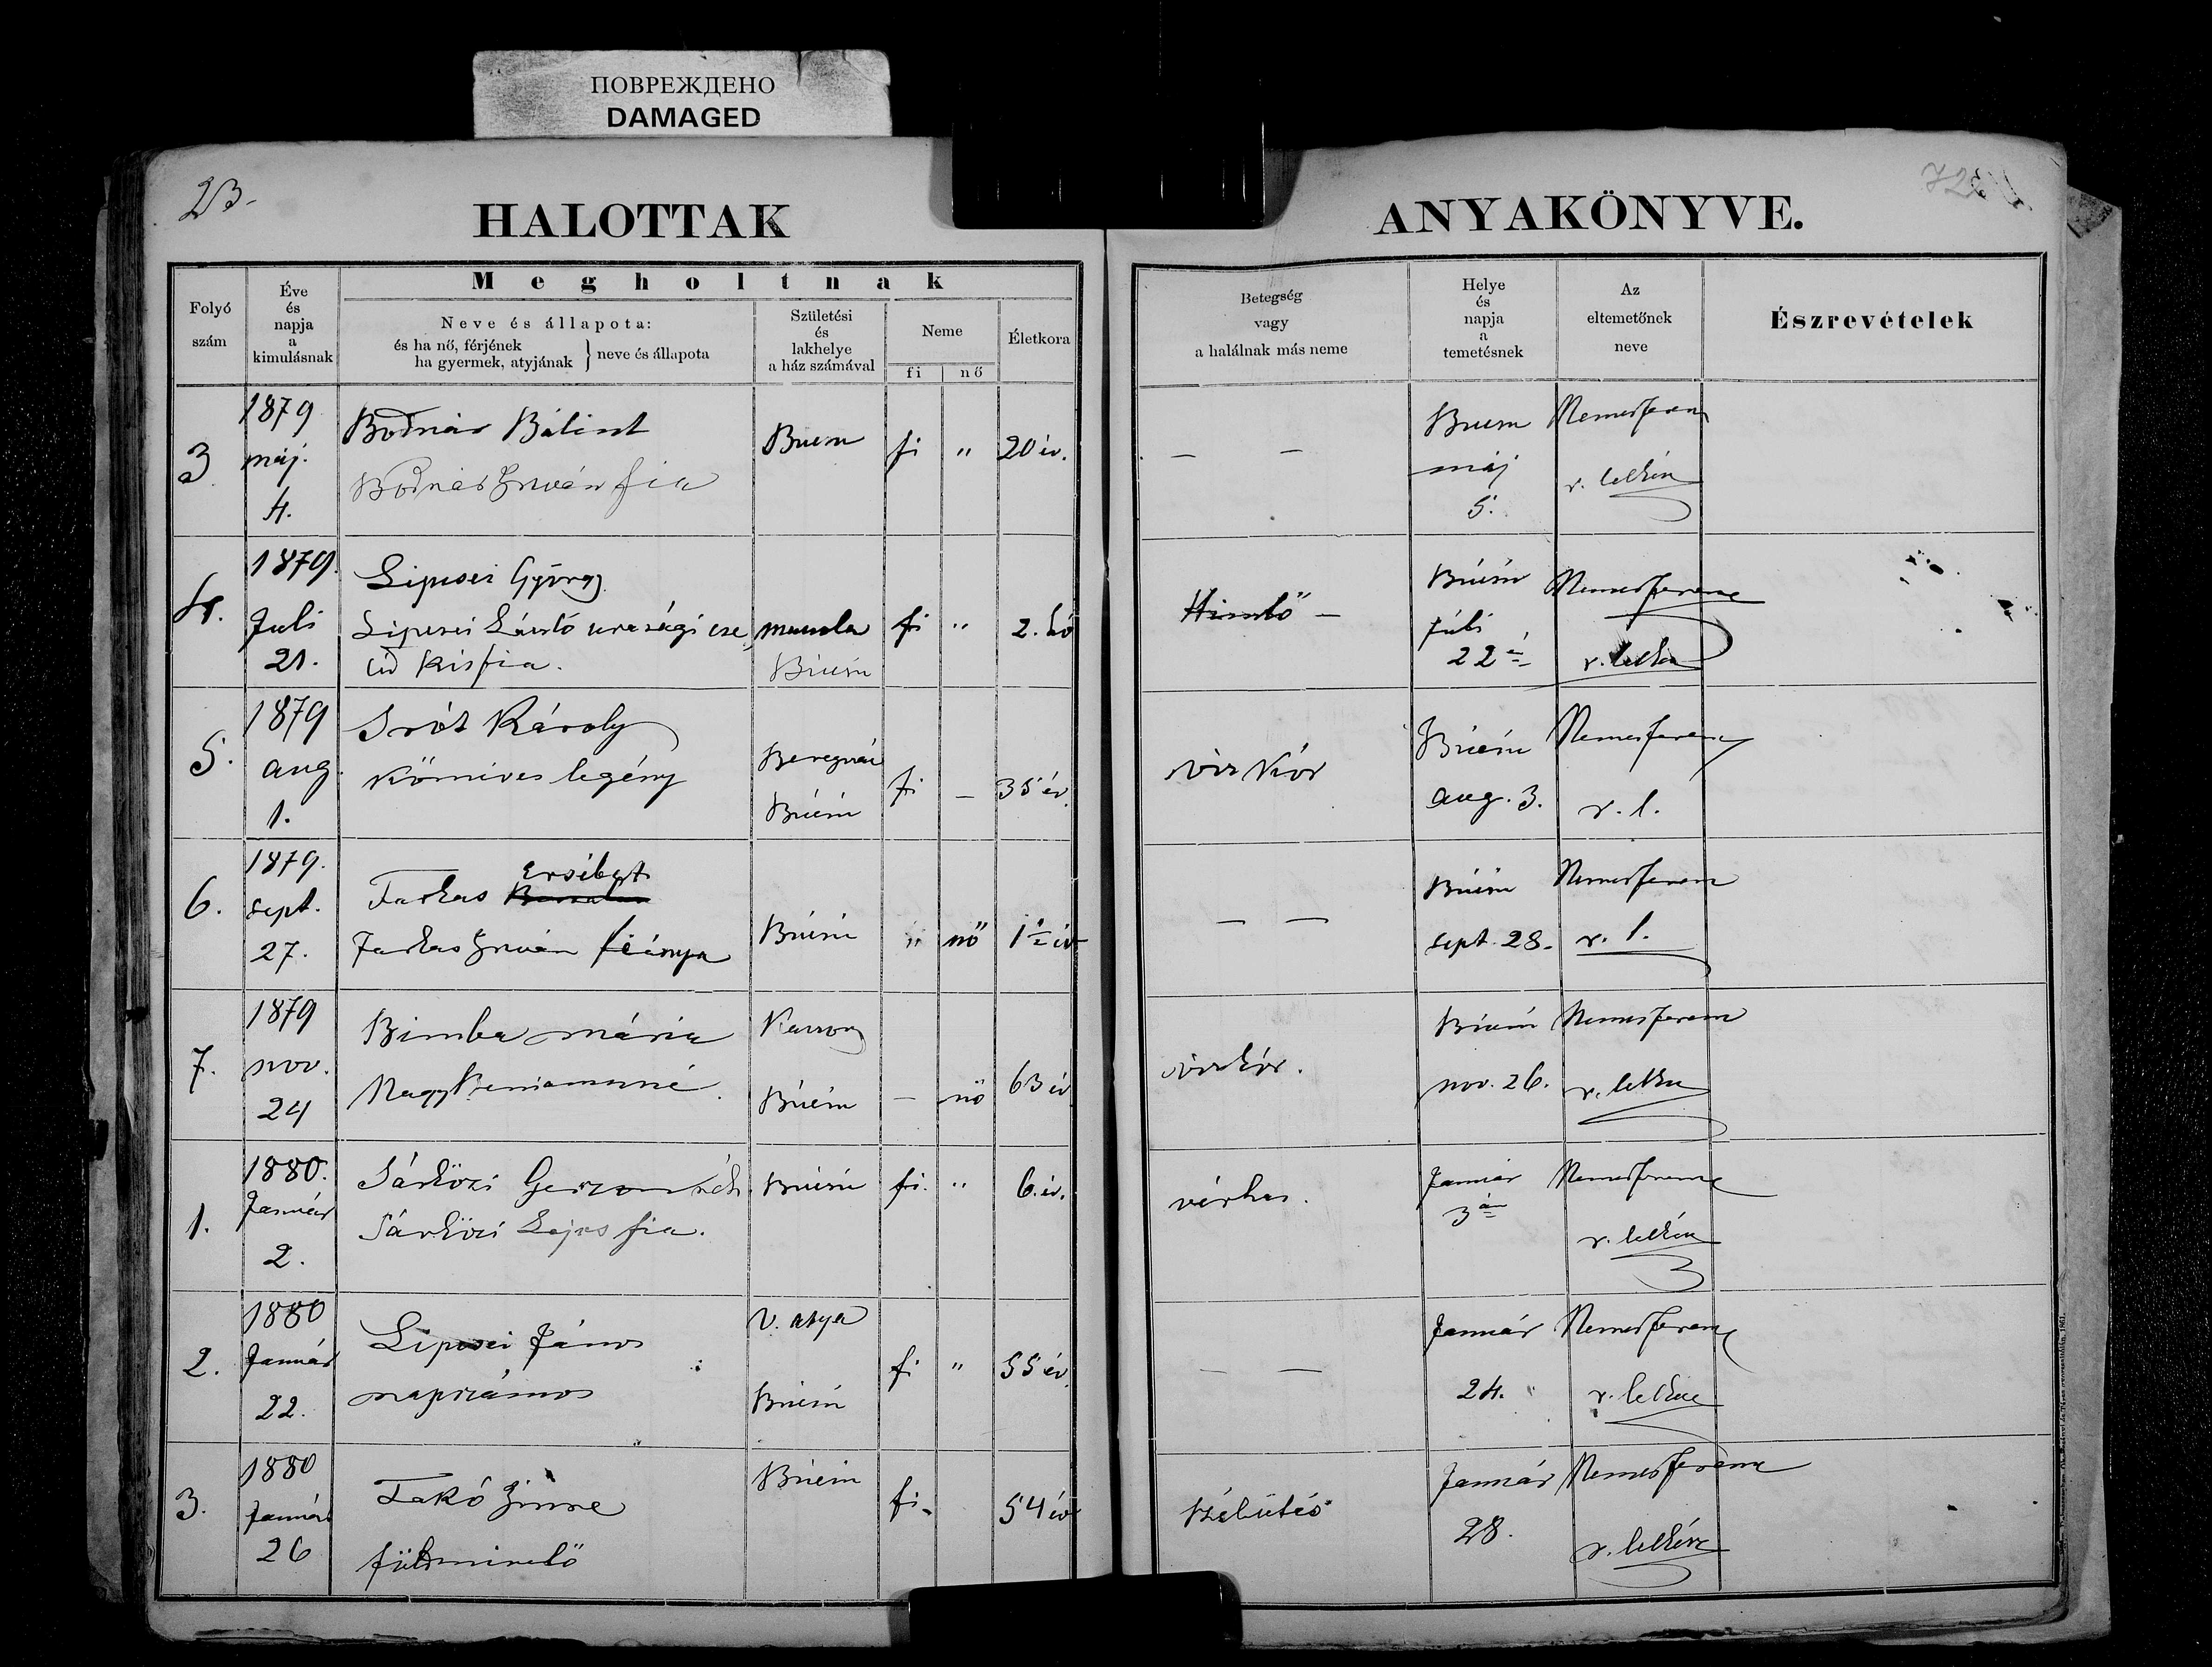 ПОВРЕЖДЕНО
DAMAGED
23.
HALOTTAK
ANYAKÖNYVE.
Folyó
szám
Éve
és
napja
a
kimulásnak
Megholtnak
Neve és állapota:
és ha nő, férjének
ha gyermek, atyjának } neve és állapota
Születési
és
lakhelye
a ház számával
Neme
fi nő
Életkora
Betegség
vagy
a halálnak más neme
Helye
és
napja
a
temetésnek
Az
eltemetőnek
neve
Észrevételek
3
1879
máj.
4.
Bodnár Bálint
Bodnár István fia
fi " 20 év.
— —
máj
5.
Nemes Feren
r. lelkén
4.
1879.
Juli
21.
Lipcsei György
Lipcsei László urasági cse
léd kisfia.
fi " 2. hó
Himlő —
juli
22 án
Nemes Ferenc
r. lelkén
5.
1879
aug.
1.
Károly
Kőmives legény
fi — 35 év.
vízkór
aug. 3.
Nemes Ferenc
r. l.
6.
1879.
sept.
27.
Farkas Ersébet
Farkas István leánya
" nő 1 1/2 év
— —
sept. 28.
Nemes Ferenc
r. l.
7.
1879
nov.
24
Bimba mária
Nagy Beniaminné.
— nő 63 év
vízkór.
nov. 26.
Nemes Ferenc
r. lelkén
1.
1880.
Január
2.
Sárközi
Sárközi Lajos fia.
fi. " 6. év.
vérhas.
Január
3 án
Nemes Ferenc
r. lelkén
2.
1880
Január
22.
Lipcsei János
napszámos
V. atya
fi " 55 év.
— —
Január
24.
Nemes Ferenc
r. lelkén
3.
1880
Január
26
Takó Imre
földmivelő
fi. 54 év
szélütés
Január
28.
Nemes Ferenc
r. lelkén